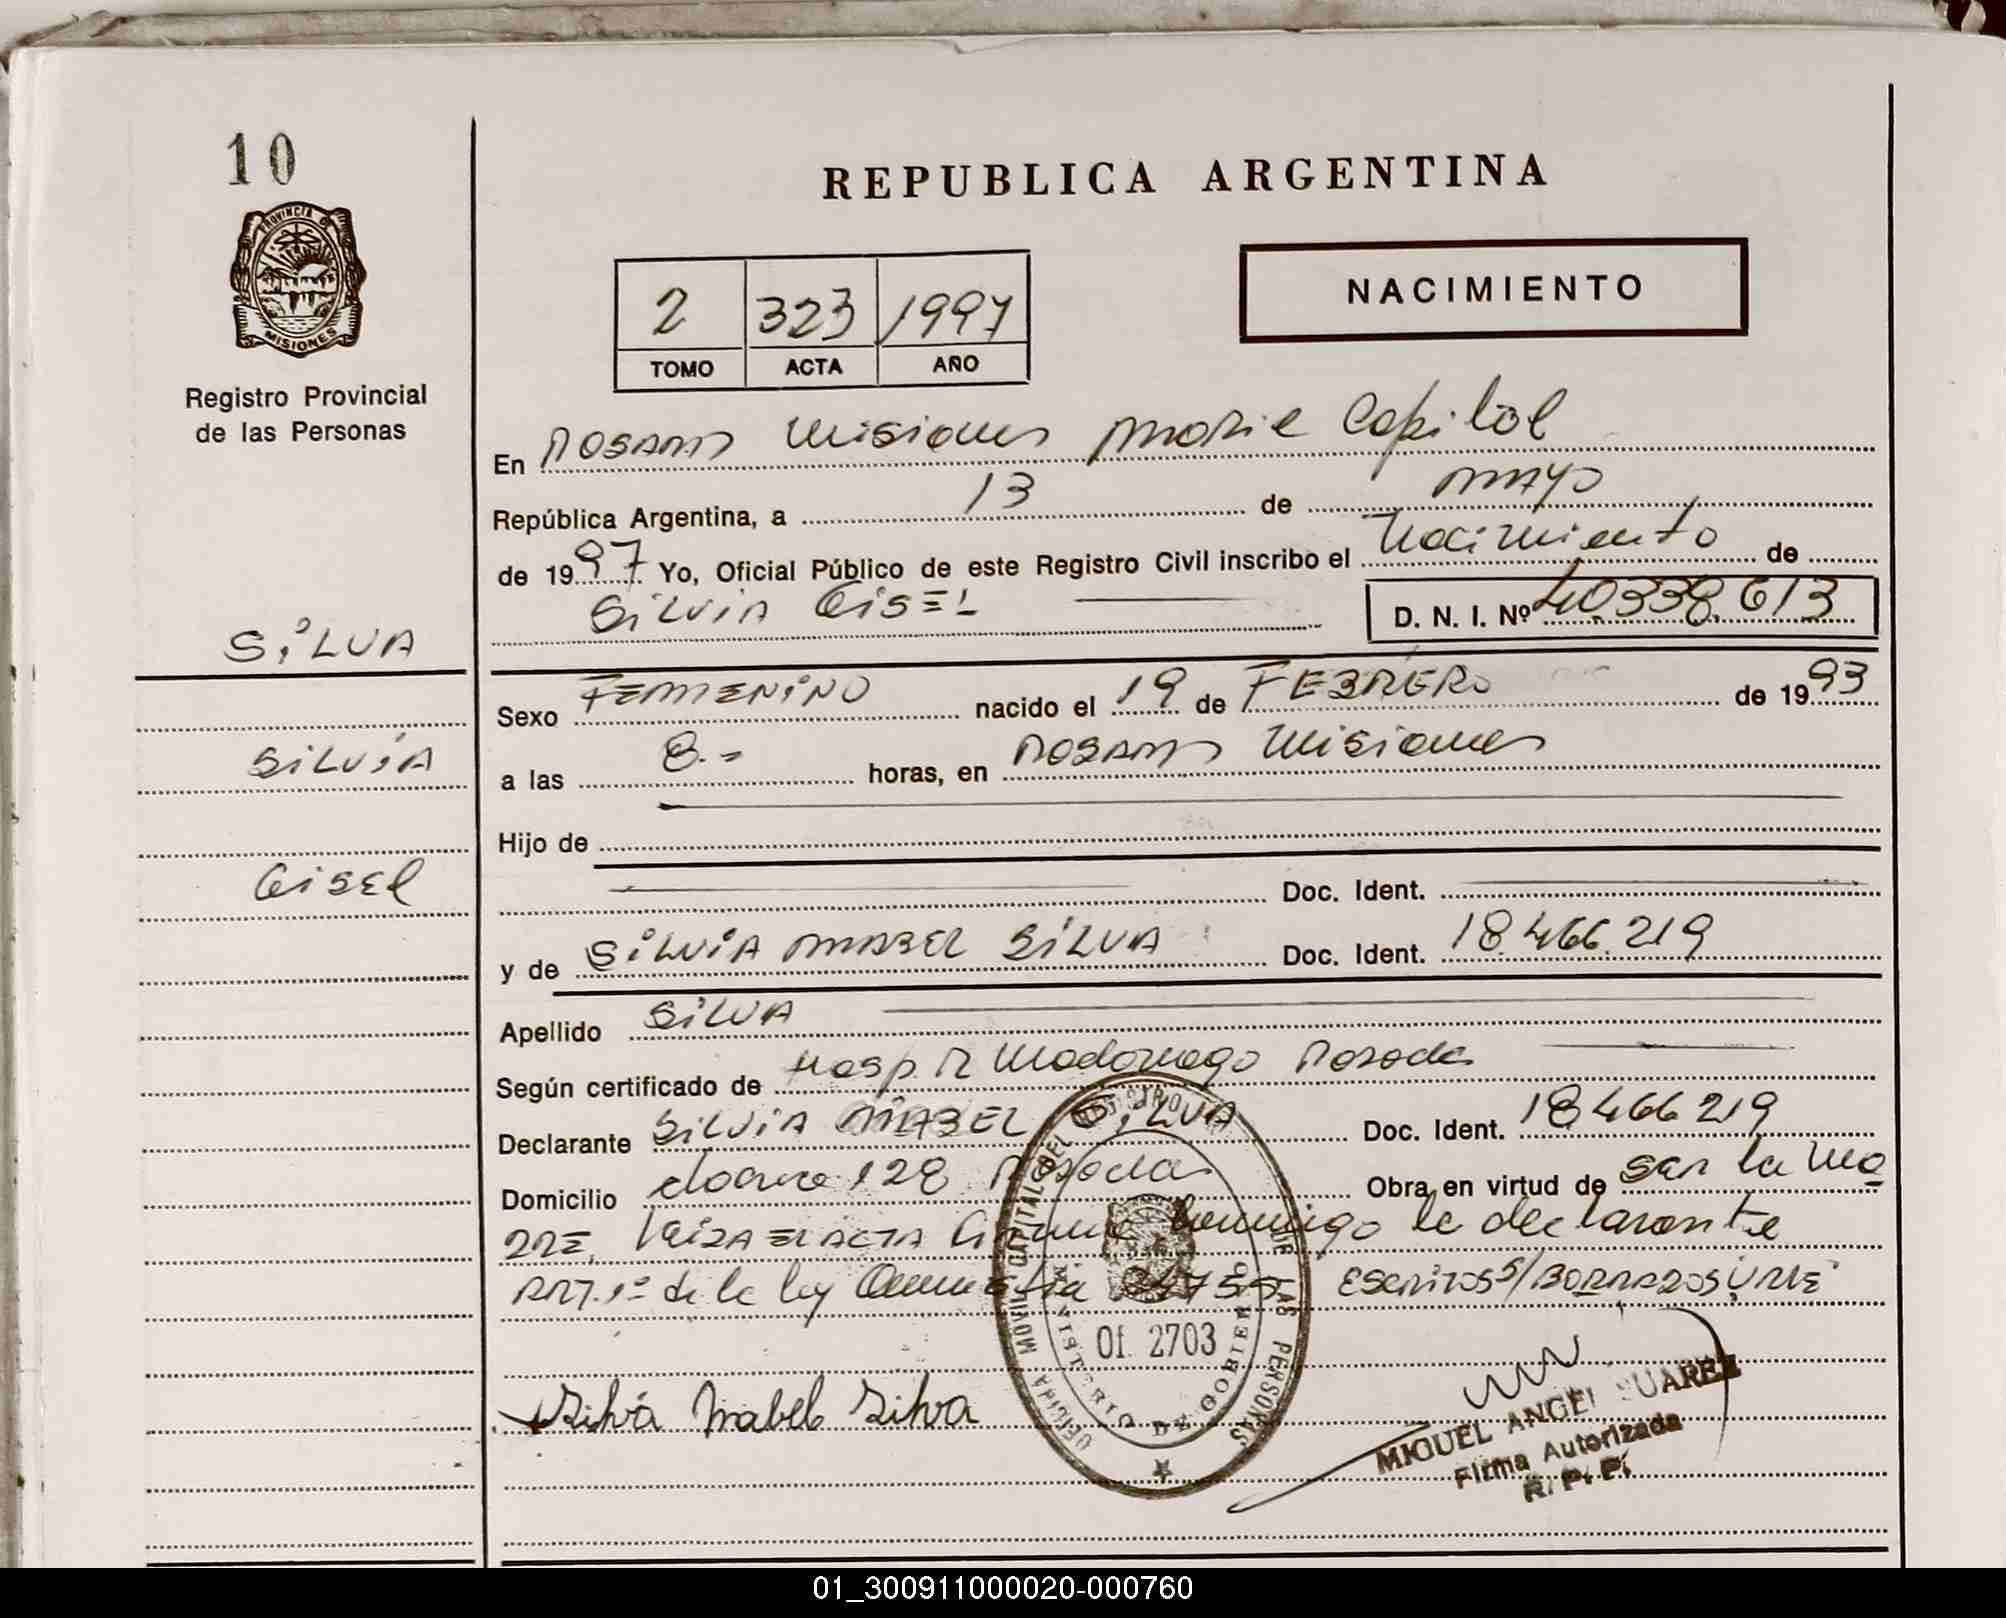 10
PROVINCIA DE
MISIONES
Registro Provincial
de las Personas
REPUBLICA ARGENTINA
2 323 1997
TOMO ACTA AÑO
NACIMIENTO
En Posadas Misiones Capital
República Argentina, a 13 de MAYO
de 1997 Yo, Oficial Público de este Registro Civil inscribo el Nacimiento de
SILVIA GISEL
D. N. I. Nº 40.338.613
SILVA
SILVIA
Gisel
Sexo FEMENINO nacido el 19 de FEBRERO de 1993
a las 8.= horas, en Posadas Misiones
Hijo de
Doc. Ident.
y de SILVIA MABEL SILVA Doc. Ident. 18.466.219
Apellido SILVA
Según certificado de Hosp R Madariaga Posadas
Declarante SILVIA MABEL SILVA Doc. Ident. 18466219
Domicilio 128 Posadas Obra en virtud de ser la ma
DRE. la declarante
ART. 1º de la ley 24755 ESCRITOS S/BORRADOS VALE
OFICINA MOVIL CAPITAL DEL REGISTRO DE LAS PERSONAS
MINISTERIO DE GOBIERNO
Of. 2703
Silvia Mabel Silva
MIGUEL ANGEL SUAREZ
Firma Autorizada
R. P. P.
01_300911000020-000760